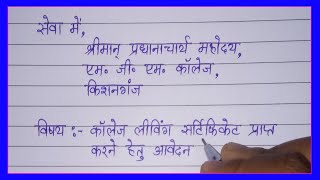 सेवा में,
श्रीमान् प्रधानाचार्य महोदय,
एम॰ जी॰ एम॰ कॉलेज,
किशनगंज
विषय :- कॉलेज लीविंग सर्टिफिकेट प्राप्त
करने हेतु आवेदन